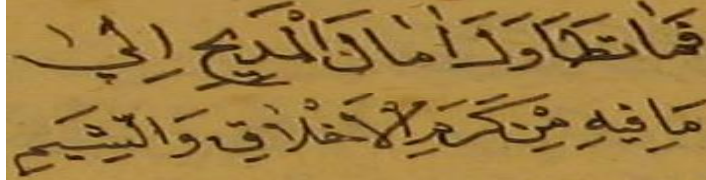 فَمَا تَطَاوَلَ اٰمَالُ الْمَدِيحِ اِلٰى
مَا فِيهِ مِنْ كَرَمِ الْاَخْلَاقِ وَالشِّيَمِ